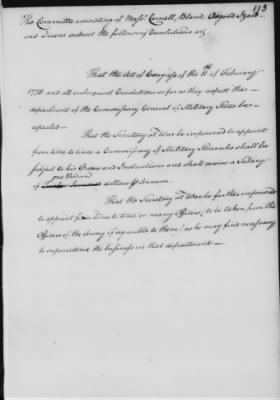 113
The Committee consisting of Messrs. Cornell, Bland, Osgood
and Duane submit the following Resolutions viz
That the Act of Congress of the 11th of February
1778 and all subsequent Resolutions so far as they respect the
department of the Commissary General of Military Stores be
repealed —
That the Secretary at War be impowered to appoint
from time to time a Commissary of Military Stores who shall be
subject to his Orders and Instructions and shall receive a Salary
one thousand
of dollars ℔ Annum.
That the Secretary at War be further impowered
to appoint from time to time so many Officers, (to be taken from the
Officers of the Army if agreeable to them) as he may find necessary
to superintend the business in that department —